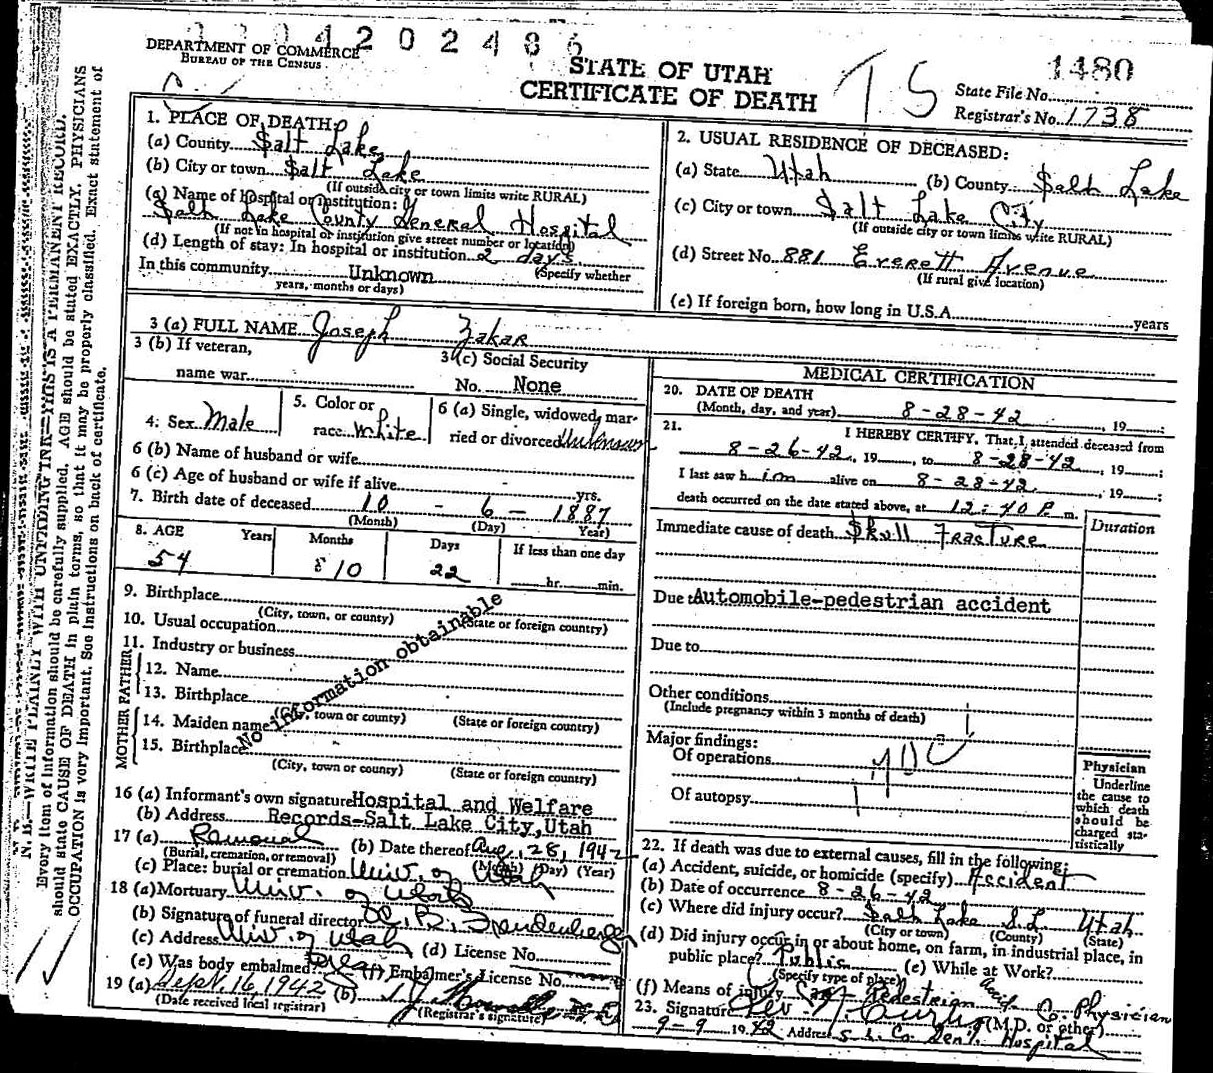 1 3 0 4 2 0 2 4 8 6
DEPARTMENT OF COMMERCE
BUREAU OF THE CENSUS
STATE OF UTAH
CERTIFICATE OF DEATH
TS
1480
State File No.
Registrar's No. 1738
N. B.—WRITE PLAINLY WITH UNFADING INK—THIS IS A PERMANENT RECORD.
Every item of information should be carefully supplied. AGE should be stated EXACTLY. PHYSICIANS
should state CAUSE OF DEATH in plain terms, so that it may be properly classified. Exact statement of
OCCUPATION is very important. See instructions on back of certificate.
1. PLACE OF DEATH:
(a) County Salt Lake
(b) City or town Salt Lake
(If outside city or town limits write RURAL)
(c) Name of hospital or institution:
Salt Lake County General Hospital
(If not in hospital or institution give street number or location)
(d) Length of stay: In hospital or institution 2 days
(Specify whether
In this community Unknown
years, months or days)
2. USUAL RESIDENCE OF DECEASED:
(a) State Utah (b) County Salt Lake
(c) City or town Salt Lake City
(If outside city or town limits write RURAL)
(d) Street No. 881 Everett Avenue
(If rural give location)
(e) If foreign born, how long in U.S.A. years
3 (a) FULL NAME Joseph Zakar
3 (b) If veteran,
name war
3 (c) Social Security
No. None
4. Sex Male
5. Color or
race White
6 (a) Single, widowed, mar-
ried or divorced Unknown
6 (b) Name of husband or wife
6 (c) Age of husband or wife if alive yrs.
7. Birth date of deceased 10 - 6 - 1887
(Month) (Day) Year)
8. AGE Years Months Days If less than one day
54 10 22 hr. min.
9. Birthplace
(City, town, or county) (State or foreign country)
10. Usual occupation
11. Industry or business
FATHER
12. Name
13. Birthplace
(City, town or county) (State or foreign country)
MOTHER
14. Maiden name
15. Birthplace
(City, town or county) (State or foreign country)
No information obtainable
16 (a) Informant's own signature Hospital and Welfare
(b) Address Records-Salt Lake City, Utah
17 (a) Removal (b) Date thereof Aug. 28, 1942
(Burial, cremation, or removal) (Month) (Day) (Year)
(c) Place: burial or cremation Univ. of Utah
18 (a) Mortuary Univ. of Utah
(b) Signature of funeral director
(c) Address Univ. of Utah (d) License No.
(e) Was body embalmed? (f) Embalmer's License No.
19 (a) Sept. 16, 1942 (b)
(Date received local registrar) (Registrar's signature)
MEDICAL CERTIFICATION
20. DATE OF DEATH
(Month, day, and year) 8-28-42, 19
21. I HEREBY CERTIFY, That I attended deceased from
8-26-42, 19, to 8-28-42, 19;
I last saw him alive on 8-28-42, 19;
death occurred on the date stated above, at 12:40 P. m.
Duration
Immediate cause of death Skull Fracture
Due to Automobile-pedestrian accident
Due to
Other conditions
(Include pregnancy within 3 months of death)
Major findings:
Of operations
Of autopsy
Physician
Underline
the cause to
which death
should be
charged sta-
tistically
22. If death was due to external causes, fill in the following:
(a) Accident, suicide, or homicide (specify) Accident
(b) Date of occurrence 8-26-42
(c) Where did injury occur? Salt Lake S.L. Utah
(City or town) (County) (State)
(d) Did injury occur in or about home, on farm, in industrial place, in
public place? Public (e) While at Work?
(Specify type of place)
(f) Means of injury Car Pedestrian
23. Signature Curtis Co. Physician
(M.D. or other)
9-9-1942 Address S. L. Co. Gen'l Hospital